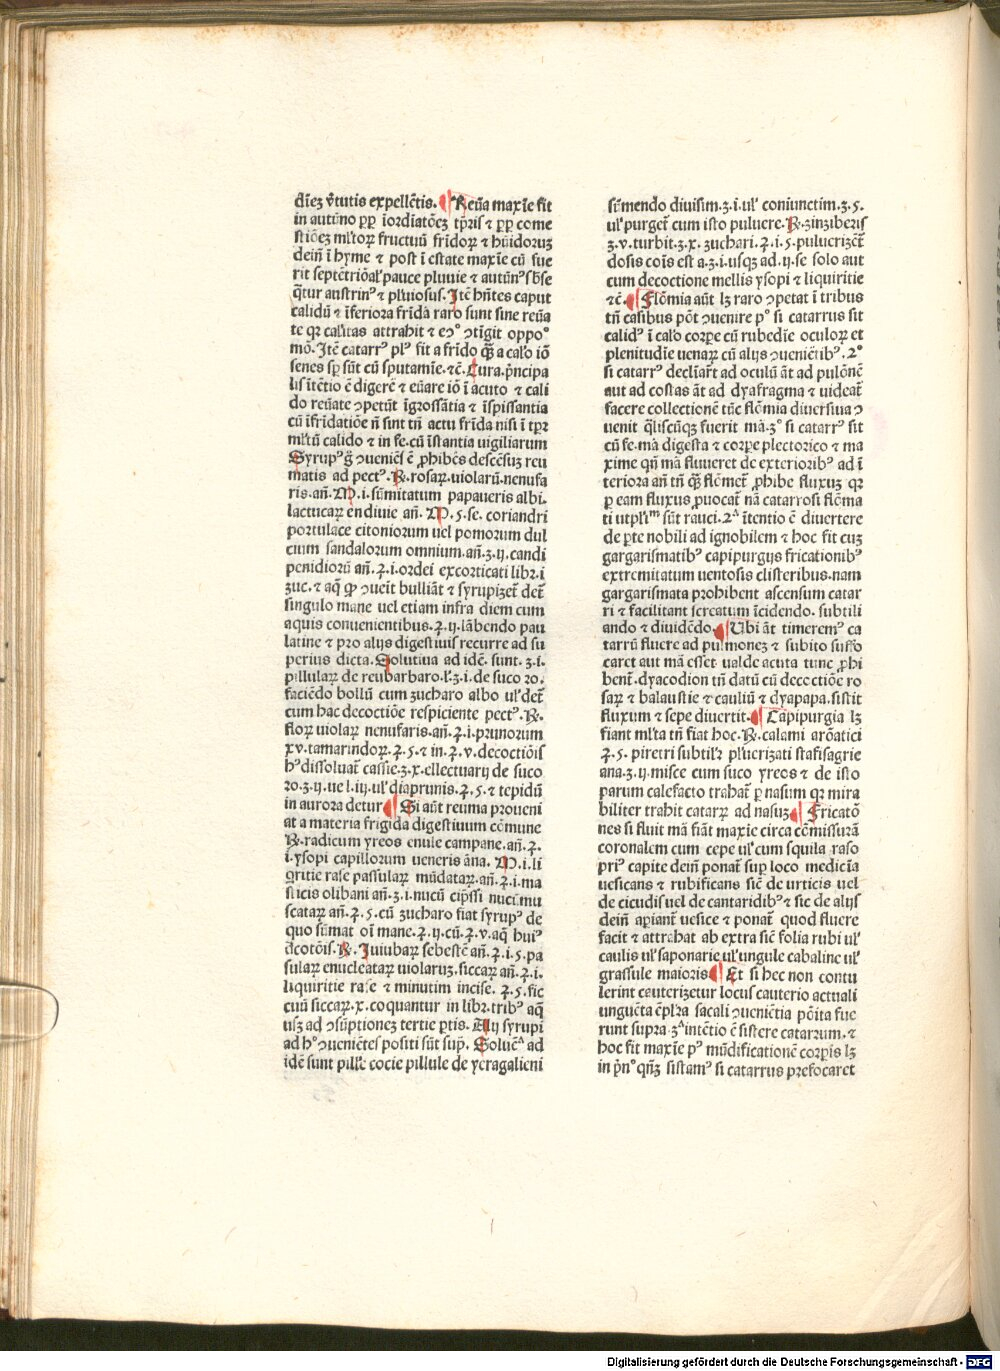 diēʒ v̄tutis expellētis. Reūa maxīe fit
in autūno ꝓꝑ īordīatōeʒ tp̄ris ⁊ ꝓꝑ come
stiōeʒ ml̓toꝝ fructuū fr̄idoꝝ ⁊ hūidoruʒ
dein̄ ī hyme ⁊ post ī estate maxīe cū fue
rit septētriōal̓ pauce pluuie ⁊ autūnꝰ
q̄tur austrinꝰ ⁊ pluiosus. Itē hn̄tes caput
calidū ⁊ īferiora fr̄ida raro sunt sine reūa
te qꝛ cal̓itas attrahit ⁊ eͦ ↄtīgit oppoͦ
mō. Itē catarrꝰ plꝰ fit a fr̄ido q̄ꝫ a cal̓o iō
senes sp̄ sūt cū sputamīe. ⁊c̄. Cura. p̄ncipa
lis ītētio ē digerē ⁊ eūare iō ī acuto ⁊ cali
do reūate ↄpetūt īgrossātia ⁊ īspissantia
cū īfridatiōe n̄ sunt tn̄ actu fr̄ida nisi ī tꝑꝛ
ml̓tū calido ⁊ in fe. cū īstantia uigiliarum
Syrupꝰ g̊ ↄueniēs ē ꝓhibēs descēsuʒ reu
matis ad pectꝰ. ℞. rosaꝝ. uiolarū. nenufa
ris. an̄. M. i. sūmitatum papaueris albi.
lactucaꝝ endiuie an̄. M. 5. se. coriandri
portulace citoniorum uel pomorum dul
cium sandalorum omnium. an̄. ʒ. ij. candi
penidiorū an̄. ℥. i. ordei excorticati libr. i
ʒuc. ⁊ aq̄ ꝙ ↄueīt bulliāt ⁊ syrupizet̄ det̄
singulo mane uel etiam infra diem cum
aquis conuenientibus. ℥. ij. lābendo pau
latine ⁊ pro alijs digestiuis recurre ad su
perius dicta. Solutiua ad idē. sunt. ʒ. i.
pillulaꝝ de reubarbaro. l̓. ʒ. i. de suco ro.
faciēdo bollū cum zucharo albo ul̓ det̄
cum hac decoctiōe respiciente pectꝰ. ℞.
floꝝ uiolaꝝ nenufaris. an̄. ℥. i. prunorum
xv. tamarindoꝝ. ℥. 5. ⁊ in. ℥. v. decoctiōis
hꝰ dissoluat̄ cassie. ʒ. x. ellectuarij de suco
ro. ʒ. ij. ue l. iij. ul̓ diaprunis. ℥. 5. ⁊ tepidū
in aurora detur Si aūt reuma proueni
at a materia frigida digestiuum cōmune
℞. radicum yreos enule campane. an̄. ℥.
i. ysopi capillorum ueneris āna. M. i. li
q̄ritie rase passulaꝝ mūdataꝝ. an̄. ℥. i. ma
sticis olibani an̄. ʒ. i. nucū cip̄ssi nuci. mu
scataꝝ an̄. ℥. 5. cū zucharo fiat syrupꝰ de
quo sūmat oī mane. ℥. ij. cū. ℥. v. aq̄ huiꝰ
d̄cotōis. ℞. Iuiubaꝝ sebestē an̄. ℥. i. 5. pa
sulaꝝ enucleataꝝ uiolaruʒ. siccaꝝ an̄. ℥. i.
liquiritie rase ⁊ minutim incise. ℥. 5. fic
cuū siccaꝝ. x. coquantur in libr. tribꝰ aq̄
usqꝫ ad ↄsūptioneʒ tertie ꝑtis. Alij syrupi
ad hͦ ↄueniētes positi sūt sup̄. Solueͣ ad
idē sunt pill̓e cocie pillule de yeragalieni
sūmendo diuisim. ʒ. i. ul̓ coniunctim. ʒ. 5.
ul̓ purget̄ cum isto puluere. ℞. zinziberis
ʒ. v. turbit. ʒ. x. zuchari. ℥. i. 5. puluerizēt̄
dosis coīs est a. ʒ. i. usqꝫ ad. ij. se solo aut
cum decoctione mellis ysopi ⁊ liquiritie
⁊c̄. Flōmia aūt lꝫ raro ↄpetat ī tribus
tn̄ casibus pōt ↄuenire pͦ si catarrus sit
calidꝰ ī cal̓o corꝑe cū rubedīe oculoꝝ et
plenitudīe uenaꝝ cū alijs ↄueniētibꝰ. 2ͦ
si catarrꝰ declīar̄t ad oculū āt ad pulōnē
aut ad costas āt ad dyafragma ⁊ uideat̄
facere collectionē tūc flōmia diuersiua ↄ
uenit q̄liscūqꝫ fuerit mā. 3ͦ si catarrꝰ sit
cū fe. mā digesta ⁊ corꝑe plectorico ⁊ ma
xime qn̄ mā fluueret de exterioribꝰ ad ī
teriora an̄ tn̄ q̄ꝫ flēmet̄ ꝓhibe fluxuʒ qꝛ
ꝑ eam fluxus ꝓuocat̄ nā catarrosi flōma
ti utpl̓iᵐ sūt rauci. 2ͣ ītentio ē diuertere
de ꝑte nobili ad ignobilem ⁊ hoc fit cuʒ
gargarismatibꝰ capipurgijs fricationibꝰ
extremitatum uentosis clisteribus. nam
gargarismata prohibent ascensum catar
ri ⁊ facilitant screatum īcidendo. subtili
ando ⁊ diuidēdo. Ubi āt timeremꝰ ca
tarrū fluere ad pulmoneʒ ⁊ subito suffo
caret aut mā esset ualde acuta tunc ꝓhi
bent̄. dyacodion tn̄ datū cū decoctiōe ro
saꝝ ⁊ balaustie ⁊ cauliū ⁊ dyapapa. sistit
fluxum ⁊ sepe diuertit. Capipurgia lꝫ
fiant ml̓ta tn̄ fiat hoc. ℞. calami arōatici
℥. 5. piretri subtil̓r pl̓uerizati stafisagrie
ana. ʒ. ij. misce cum suco yreos ⁊ de isto
parum calefacto trahat̄ ꝑ nasum qꝛ mira
biliter trahit catarꝝ ad nasuʒ Fricatō
nes si fluit mā fiāt maxīe circa cōmissurā
coronalem cum cepe ul̓ cum squila raso
priꝰ capite dein̄ ponat̄ sup̄ loco medicīa
uesicans ⁊ rubificans sicē de urticis uel
de cicudis uel de cantaridibꝰ ⁊ sic de alijs
dein̄ apiant̄ uesice ⁊ ponat̄ quod fluere
facit ⁊ attrahat ab extra sicē folia rubi ul̓
caulis ul̓ saponarie ul̓ ungule cabaline ul̓
grassule maioris Et si hec non contu
lerint cauterizetur locus cauterio actuali
unguēta ēpl̓ra sacali ↄueniētia pōita fue
runt supra. 3ͣ intētio ē sistere catarrum. ⁊
hoc fit maxīe pꝰ mūdificationē corꝑis lꝫ
in p̄nͦ qn̄qꝫ sistamꝰ si catarrus prefocaret
Digitalisierung gefördert durch die Deutsche Forschungsgemeinschaft - DFG